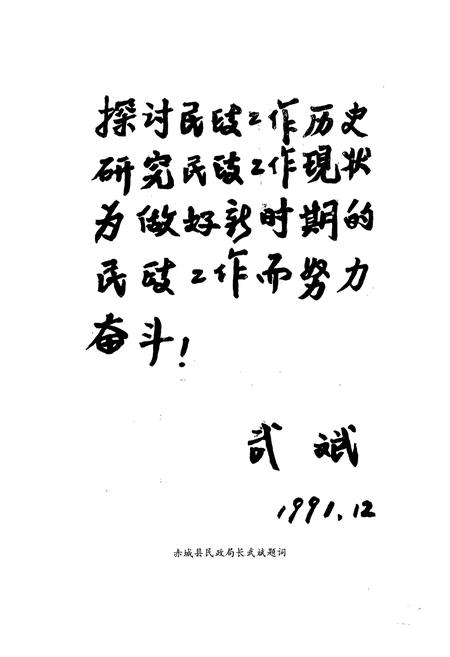 探讨民政工作历史
研究民政工作現状
为做好新时期的
民政工作而努力
奋斗!
武斌
1991.12
赤城县民政局长武斌题词